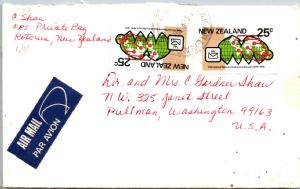 C. Shaw
Private Bag
Rotorua, New Zealand
NEW ZEALAND 25c
NEW ZEALAND 25c
Dr. and Mrs. C. Gardner Shaw
N.W. 325 Janet Street
Pullman, Washington 99163
U.S.A.
AIR MAIL
PAR AVION